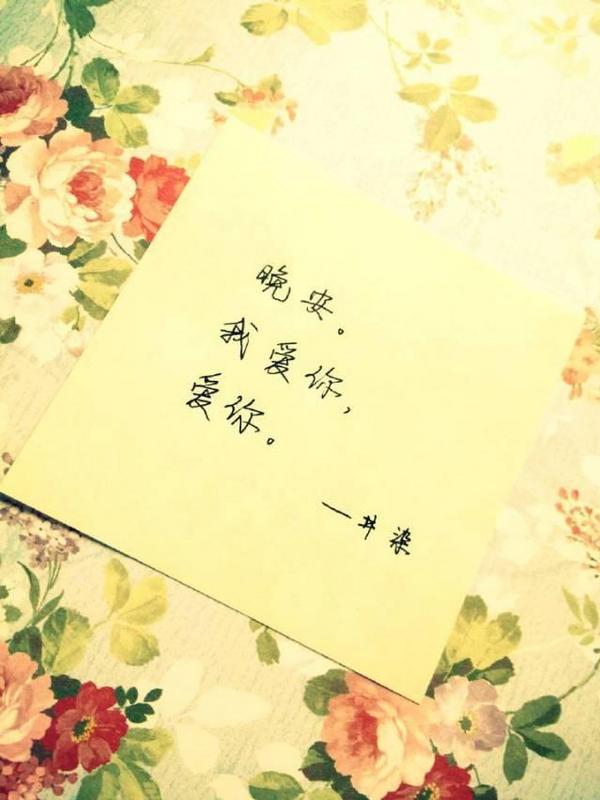 晚安。
我爱你，
爱你。
—井染